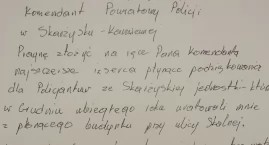 Komendant Powiatowy Policji
w Skarżysku-Kamiennej
Pragnę złożyć na ręce Pana komendanta
najszczersze i z serca płynące podziękowania
dla Policjantów ze Skarżyskiej jednostki, którzy
w Grudniu ubiegłego roku uratowali mnie
z płonącego budynku przy ulicy Skalnej.